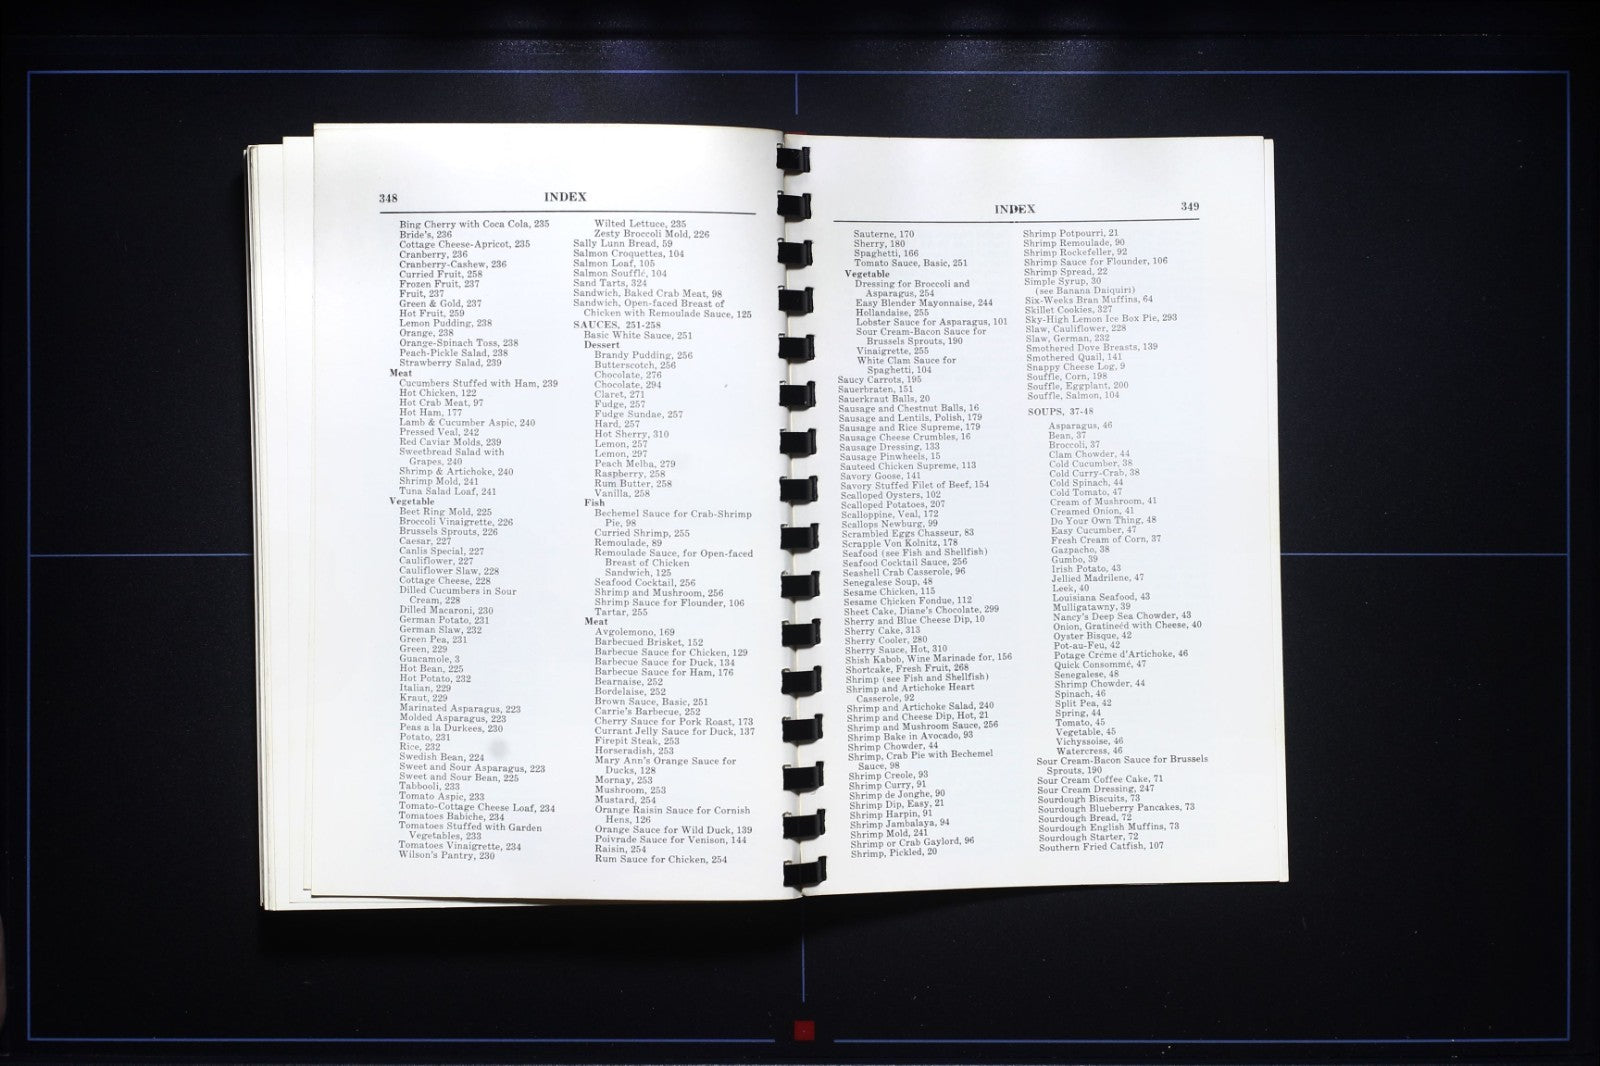 348
INDEX
Bing Cherry with Coca Cola, 235
Bride's, 236
Cottage Cheese-Apricot, 235
Cranberry, 236
Cranberry-Cashew, 236
Curried Fruit, 258
Frozen Fruit, 237
Fruit, 237
Green & Gold, 237
Hot Fruit, 259
Lemon Pudding, 238
Orange, 238
Orange-Spinach Toss, 238
Peach-Pickle Salad, 238
Strawberry Salad, 239
Meat
Cucumbers Stuffed with Ham, 239
Hot Chicken, 122
Hot Crab Meat, 97
Hot Ham, 177
Lamb & Cucumber Aspic, 240
Pressed Veal, 242
Red Caviar Molds, 239
Sweetbread Salad with
Grapes, 240
Shrimp & Artichoke, 240
Shrimp Mold, 241
Tuna Salad Loaf, 241
Vegetable
Beet Ring Mold, 225
Broccoli Vinaigrette, 226
Brussels Sprouts, 226
Caesar, 227
Canlis Special, 227
Cauliflower, 227
Cauliflower Slaw, 228
Cottage Cheese, 228
Dilled Cucumbers in Sour
Cream, 228
Dilled Macaroni, 230
German Potato, 231
German Slaw, 232
Green Pea, 231
Green, 229
Guacamole, 3
Hot Bean, 225
Hot Potato, 232
Italian, 229
Kraut, 229
Marinated Asparagus, 223
Molded Asparagus, 223
Peas a la Durkees, 230
Potato, 231
Rice, 232
Swedish Bean, 224
Sweet and Sour Asparagus, 223
Sweet and Sour Bean, 225
Tabbouli, 233
Tomato Aspic, 233
Tomato-Cottage Cheese Loaf, 234
Tomatoes Babiche, 234
Tomatoes Stuffed with Garden
Vegetables, 233
Tomatoes Vinaigrette, 234
Wilson's Pantry, 230
Wilted Lettuce, 235
Zesty Broccoli Mold, 226
Sally Lunn Bread, 59
Salmon Croquettes, 104
Salmon Loaf, 105
Salmon Soufflé, 104
Sand Tarts, 324
Sandwich, Baked Crab Meat, 98
Sandwich, Open-faced Breast of
Chicken with Remoulade Sauce, 125
SAUCES, 251-258
Basic White Sauce, 251
Dessert
Brandy Pudding, 256
Butterscotch, 256
Chocolate, 276
Chocolate, 294
Claret, 271
Fudge, 257
Fudge Sundae, 257
Hard, 257
Hot Sherry, 310
Lemon, 257
Lemon, 297
Peach Melba, 279
Raspberry, 258
Rum Butter, 258
Vanilla, 258
Fish
Bechemel Sauce for Crab-Shrimp
Pie, 98
Curried Shrimp, 255
Remoulade, 89
Remoulade Sauce, for Open-faced
Breast of Chicken
Sandwich, 125
Seafood Cocktail, 256
Shrimp and Mushroom, 256
Shrimp Sauce for Flounder, 106
Tartar, 255
Meat
Avgolemono, 169
Barbecued Brisket, 152
Barbecue Sauce for Chicken, 129
Barbecue Sauce for Duck, 134
Barbecue Sauce for Ham, 176
Bearnaise, 252
Bordelaise, 252
Brown Sauce, Basic, 251
Carrie's Barbecue, 252
Cherry Sauce for Pork Roast, 173
Currant Jelly Sauce for Duck, 137
Firepit Steak, 253
Horseradish, 253
Mary Ann's Orange Sauce for
Ducks, 128
Mornay, 253
Mushroom, 253
Mustard, 254
Orange Raisin Sauce for Cornish
Hens, 126
Orange Sauce for Wild Duck, 139
Poivrade Sauce for Venison, 144
Raisin, 254
Rum Sauce for Chicken, 254
INDEX
349
Sauterne, 170
Sherry, 180
Spaghetti, 166
Tomato Sauce, Basic, 251
Vegetable
Dressing for Broccoli and
Asparagus, 254
Easy Blender Mayonnaise, 244
Hollandaise, 255
Lobster Sauce for Asparagus, 101
Sour Cream-Bacon Sauce for
Brussels Sprouts, 190
Vinaigrette, 255
White Clam Sauce for
Spaghetti, 104
Saucy Carrots, 195
Sauerbraten, 151
Sauerkraut Balls, 20
Sausage and Chestnut Balls, 16
Sausage and Lentils, Polish, 179
Sausage and Rice Supreme, 179
Sausage Cheese Crumbles, 16
Sausage Dressing, 133
Sausage Pinwheels, 15
Sauteed Chicken Supreme, 113
Savory Goose, 141
Savory Stuffed Filet of Beef, 154
Scalloped Oysters, 102
Scalloped Potatoes, 207
Scalloppine, Veal, 172
Scallops Newburg, 99
Scrambled Eggs Chasseur, 83
Scrapple Von Kolnitz, 178
Seafood (see Fish and Shellfish)
Seafood Cocktail Sauce, 256
Seashell Crab Casserole, 96
Senegalese Soup, 48
Sesame Chicken, 115
Sesame Chicken Fondue, 112
Sheet Cake, Diane's Chocolate, 299
Sherry and Blue Cheese Dip, 10
Sherry Cake, 313
Sherry Cooler, 280
Sherry Sauce, Hot, 310
Shish Kabob, Wine Marinade for, 156
Shortcake, Fresh Fruit, 268
Shrimp (see Fish and Shellfish)
Shrimp and Artichoke Heart
Casserole, 92
Shrimp and Artichoke Salad, 240
Shrimp and Cheese Dip, Hot, 21
Shrimp and Mushroom Sauce, 256
Shrimp Bake in Avocado, 93
Shrimp Chowder, 44
Shrimp, Crab Pie with Bechemel
Sauce, 98
Shrimp Creole, 93
Shrimp Curry, 91
Shrimp de Jonghe, 90
Shrimp Dip, Easy, 21
Shrimp Harpin, 91
Shrimp Jambalaya, 94
Shrimp Mold, 241
Shrimp or Crab Gaylord, 96
Shrimp, Pickled, 20
Shrimp Potpourri, 21
Shrimp Remoulade, 90
Shrimp Rockefeller, 92
Shrimp Sauce for Flounder, 106
Shrimp Spread, 22
Simple Syrup, 30
(see Banana Daiquiri)
Six-Weeks Bran Muffins, 64
Skillet Cookies, 327
Sky-High Lemon Ice Box Pie, 293
Slaw, Cauliflower, 228
Slaw, German, 232
Smothered Dove Breasts, 139
Smothered Quail, 141
Snappy Cheese Log, 9
Souffle, Corn, 198
Souffle, Eggplant, 200
Souffle, Salmon, 104
SOUPS, 37-48
Asparagus, 46
Bean, 37
Broccoli, 37
Clam Chowder, 44
Cold Cucumber, 38
Cold Curry-Crab, 38
Cold Spinach, 44
Cold Tomato, 47
Cream of Mushroom, 41
Creamed Onion, 41
Do Your Own Thing, 48
Easy Cucumber, 47
Fresh Cream of Corn, 37
Gazpacho, 38
Gumbo, 39
Irish Potato, 43
Jellied Madrilene, 47
Leek, 40
Louisiana Seafood, 43
Mulligatawny, 39
Nancy's Deep Sea Chowder, 43
Onion, Gratineéd with Cheese, 40
Oyster Bisque, 42
Pot-au-Feu, 42
Potage Crème d'Artichoke, 46
Quick Consommé, 47
Senegalese, 48
Shrimp Chowder, 44
Spinach, 46
Split Pea, 42
Spring, 44
Tomato, 45
Vegetable, 45
Vichyssoise, 46
Watercress, 46
Sour Cream-Bacon Sauce for Brussels
Sprouts, 190
Sour Cream Coffee Cake, 71
Sour Cream Dressing, 247
Sourdough Biscuits, 73
Sourdough Blueberry Pancakes, 73
Sourdough Bread, 72
Sourdough English Muffins, 73
Sourdough Starter, 72
Southern Fried Catfish, 107